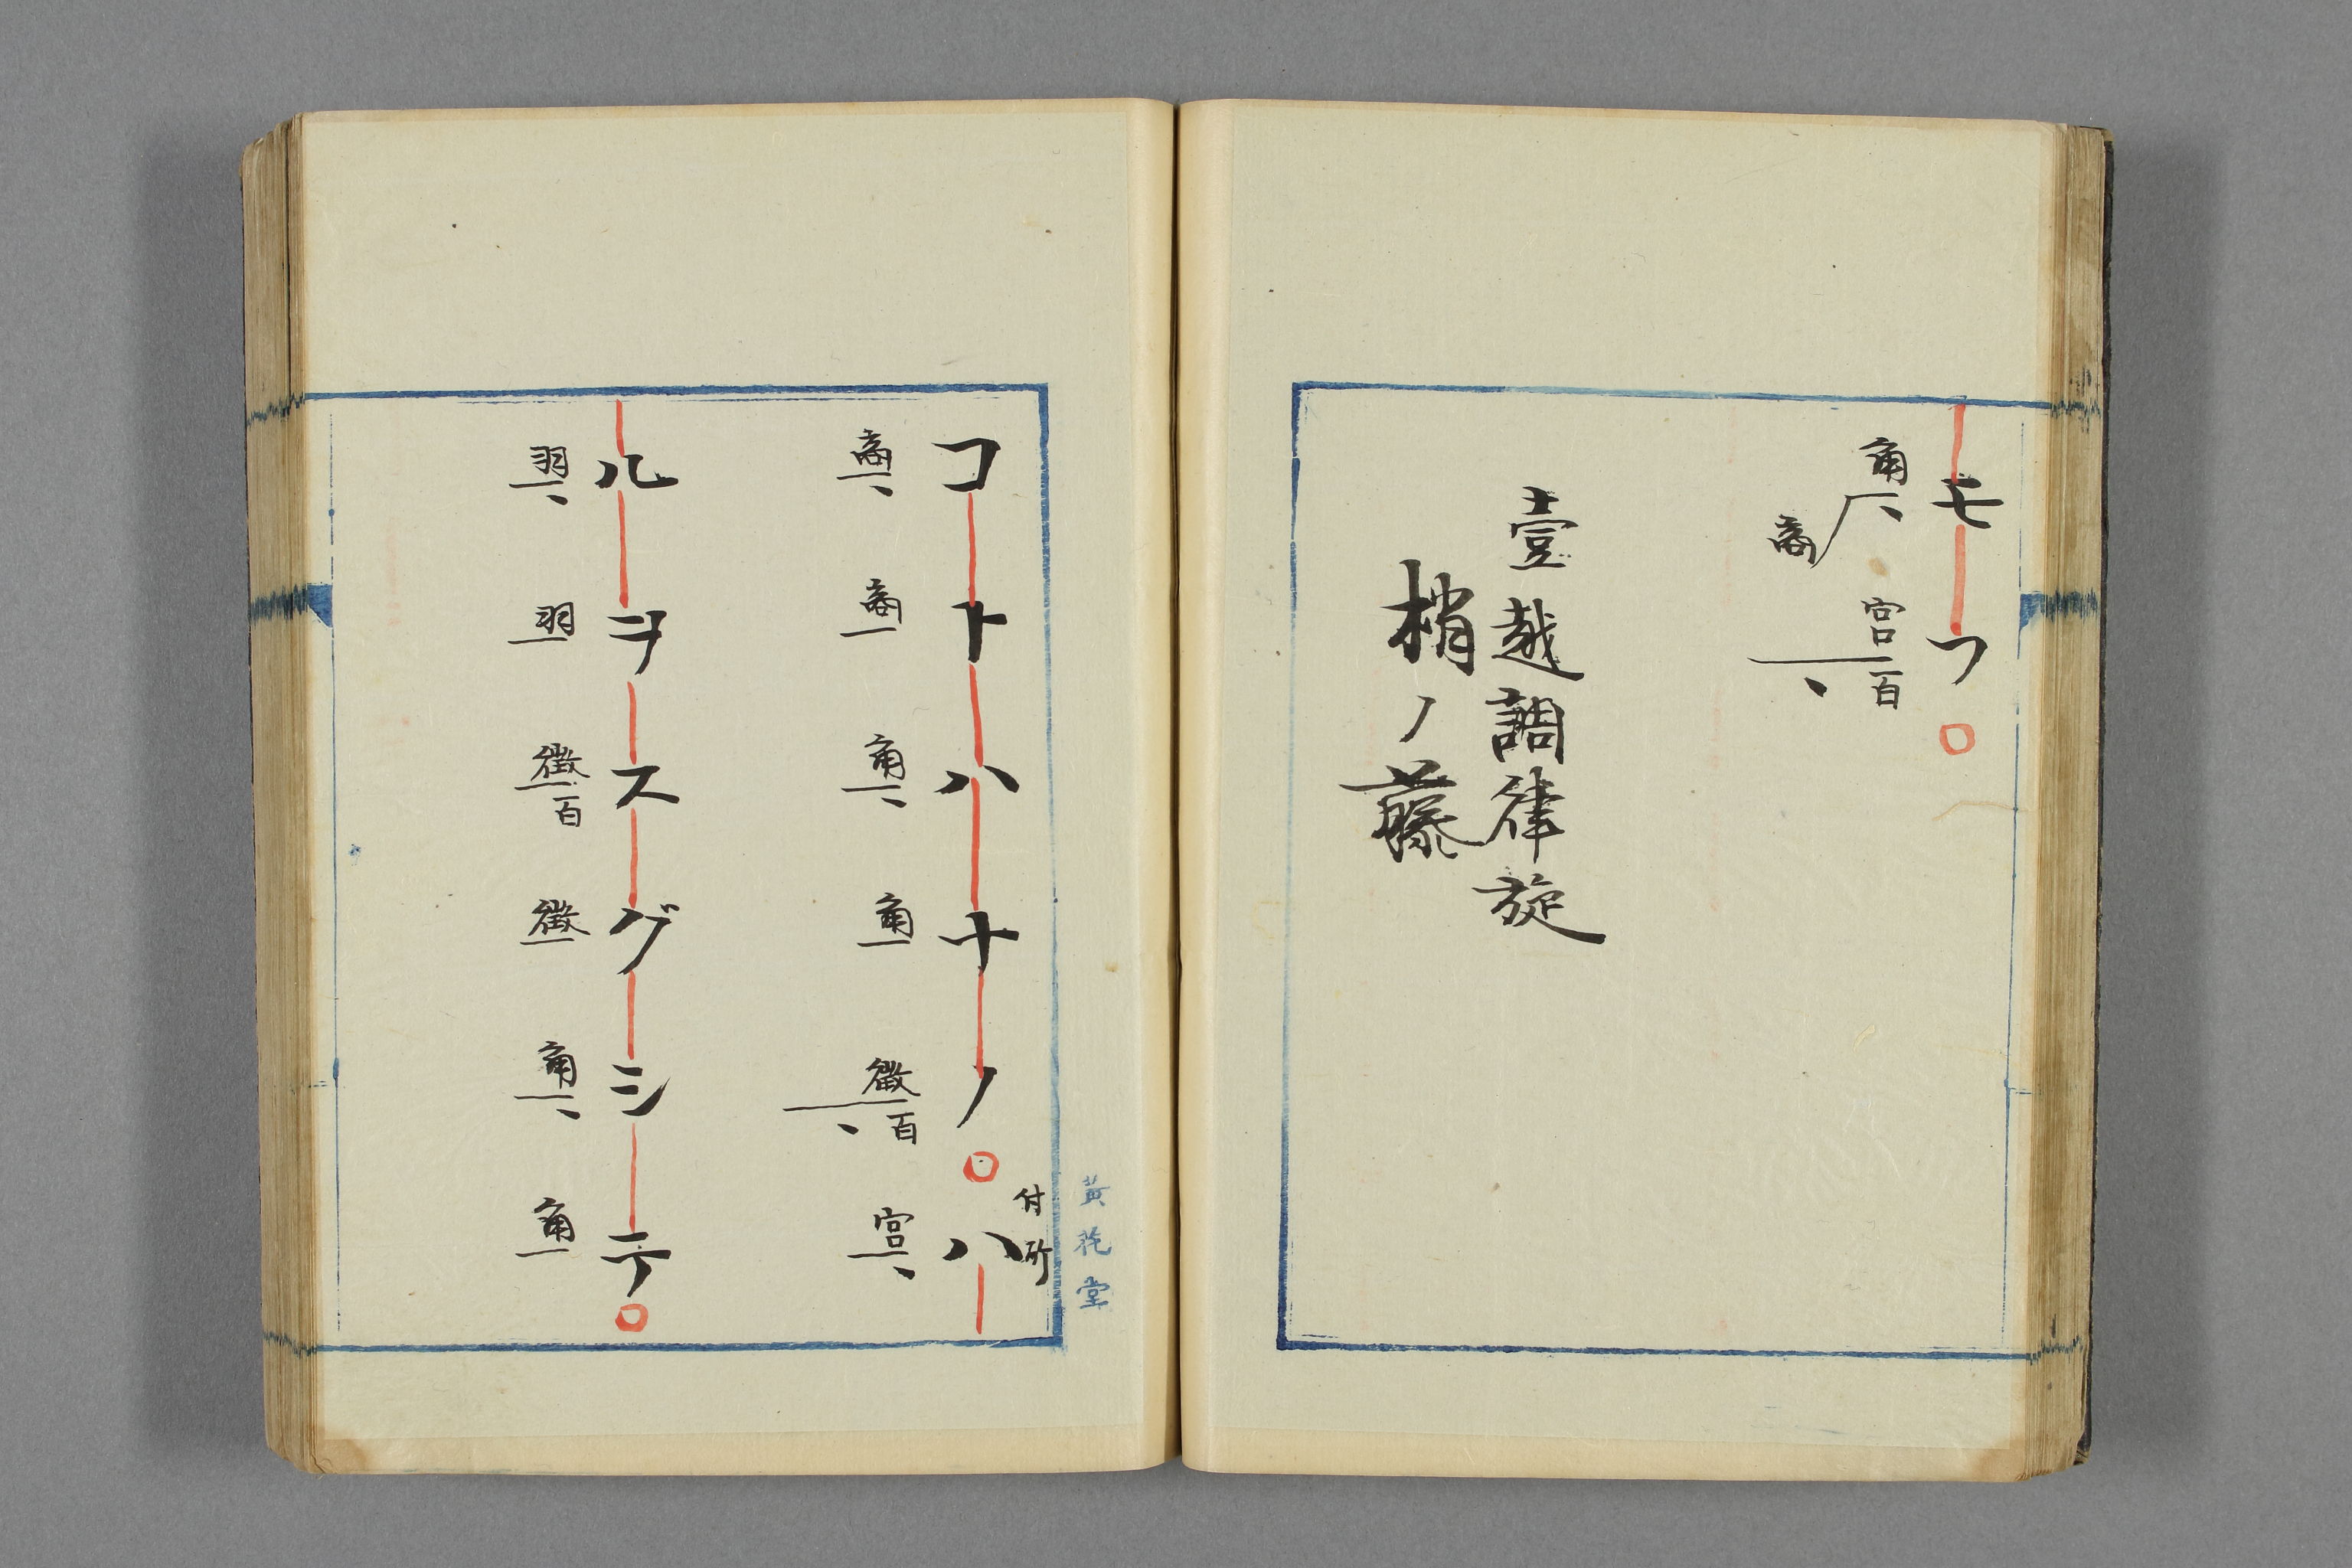 モフ
角 商 宮百
壹越調律旋
梢ノ藤
黄花堂
付所
コトハナノハ
商 商 角 角 徴百 宮
ルヲスグシテ
羽 羽 徴百 徴 角 角